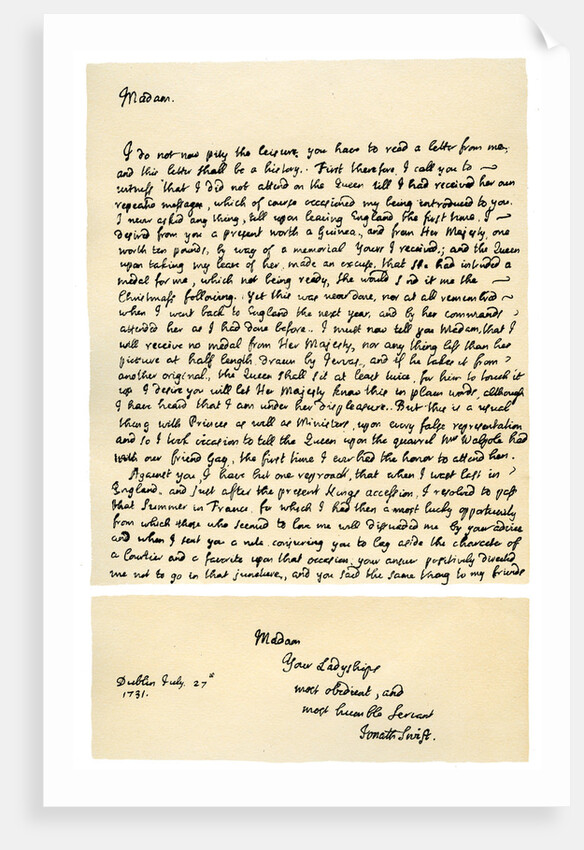 Madam.
I do not now pity the leisure you have to read a letter from me;
and this letter shall be a history. First therefore, I call you to
witness that I did not attend on the Queen till I had received her own
repeated messages, which of course occasioned my being introduced to you.
I never asked any thing, till upon leaving England the first time, I
desired from you a present worth a Guinea, and from Her Majesty, one
worth ten pounds, by way of a memorial Yours I received; and the Queen
upon taking my leave of her, made an excuse, that she had intended a
medal for me, which not being ready, she would send it me the
Christmass following. Yet this was never done, nor at all remembred
when I went back to England the next year, and by her commands
attended her as I had done before. I must now tell you Madam, that I
will receive no medal from Her Majesty, nor any thing less than her
picture at half length, drawn by Jervas, and if he takes it from
another original, the Queen shall sit at least twice for him to touch it
up. I desire you will let Her Majesty know this in plain words, although
I have heard that I am under her displeasure. But this is a usual
thing with Princes as well as Ministers, upon every false representation
and so I took occasion to tell the Queen upon the quarrel Mr Walpole had
with our friend Gay, the first time I ever had the honor to attend her.
Against you, I have but one reproach, that when I was last in
England, and just after the present Kings accession, I resolved to pass
that Summer in France, for which I had then a most lucky opportunity
from which those who seemed to love me well disuaded me by your advice
and when I sent you a note, conjuring you to lay aside the character of
a Courtier and a favorite upon that occasion, your answer positively directed
me not to go in that juncture, and you said the same thing to my friends
Madam
Your Ladyships
most obedient, and
most humble Servant
Jonath Swift.
Dublin July. 27th
1731.